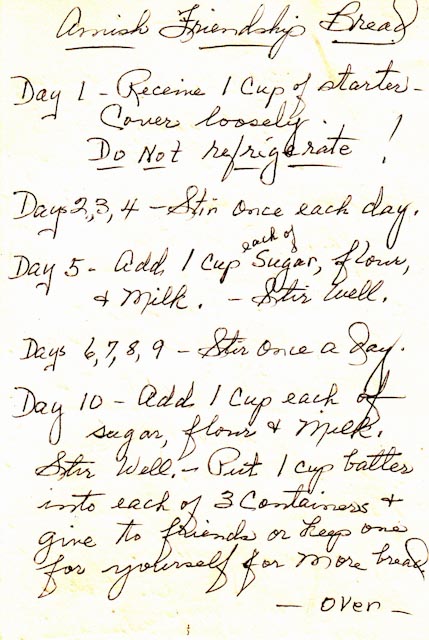 Amish Friendship Bread
Day 1 - Receive 1 Cup of starter -
Cover loosely.
Do Not refrigerate !
Days 2, 3, 4 - Stir once each day.
Day 5 - Add 1 cup each of Sugar, flour,
& Milk. - Stir Well.
Days 6, 7, 8, 9 - Stir once a day.
Day 10 - Add 1 Cup each of
sugar, flour & Milk.
Stir Well. - Put 1 cup batter
into each of 3 Containers &
give to friends or keep one
for yourself for more bread
- over -